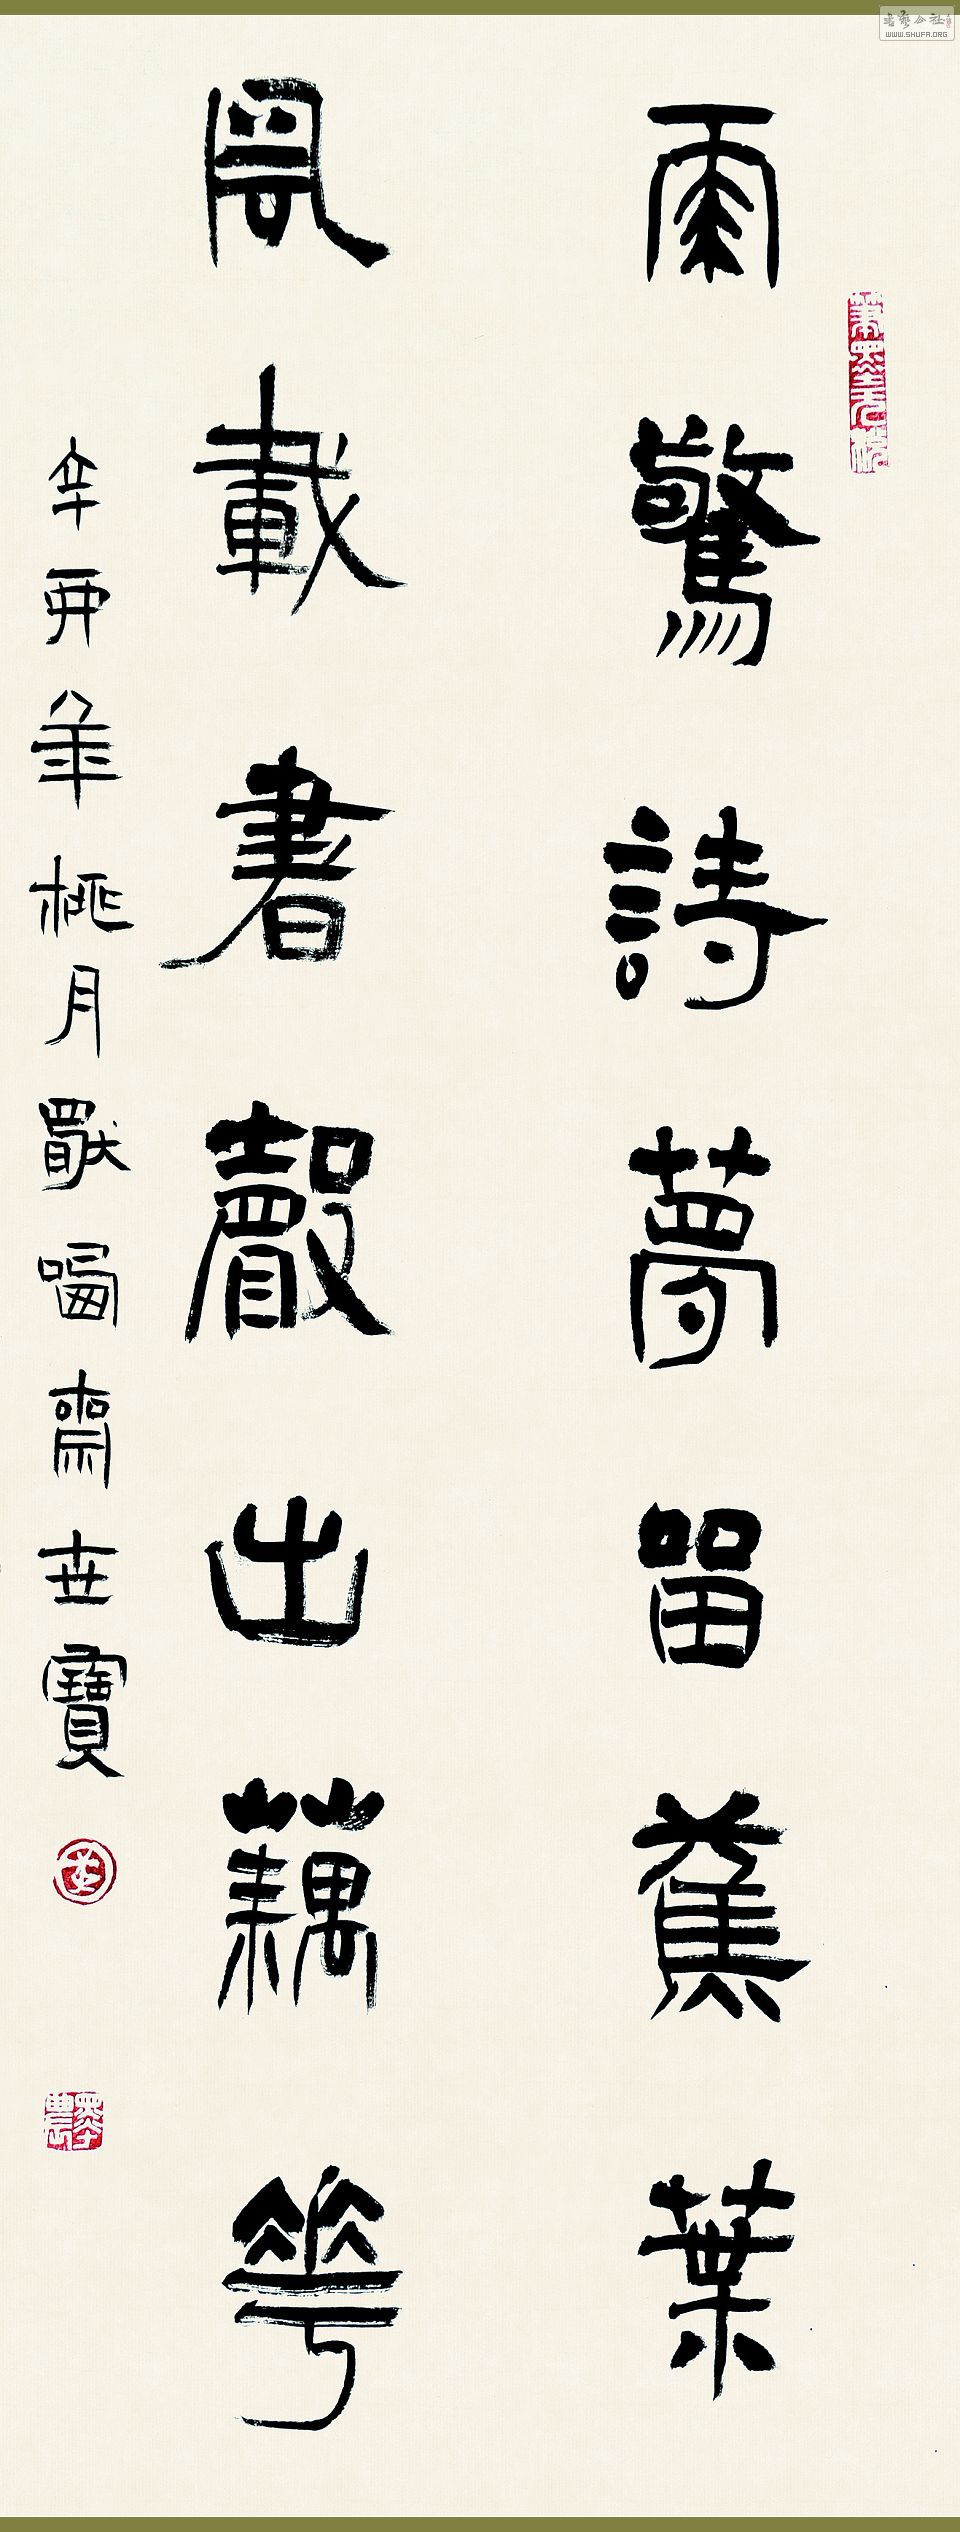 雨驚詩夢留蕉葉
風載書聲出藕花
辛丑年桃月獻
齋世寶
書藝公社
WWW.SHUFA.ORG